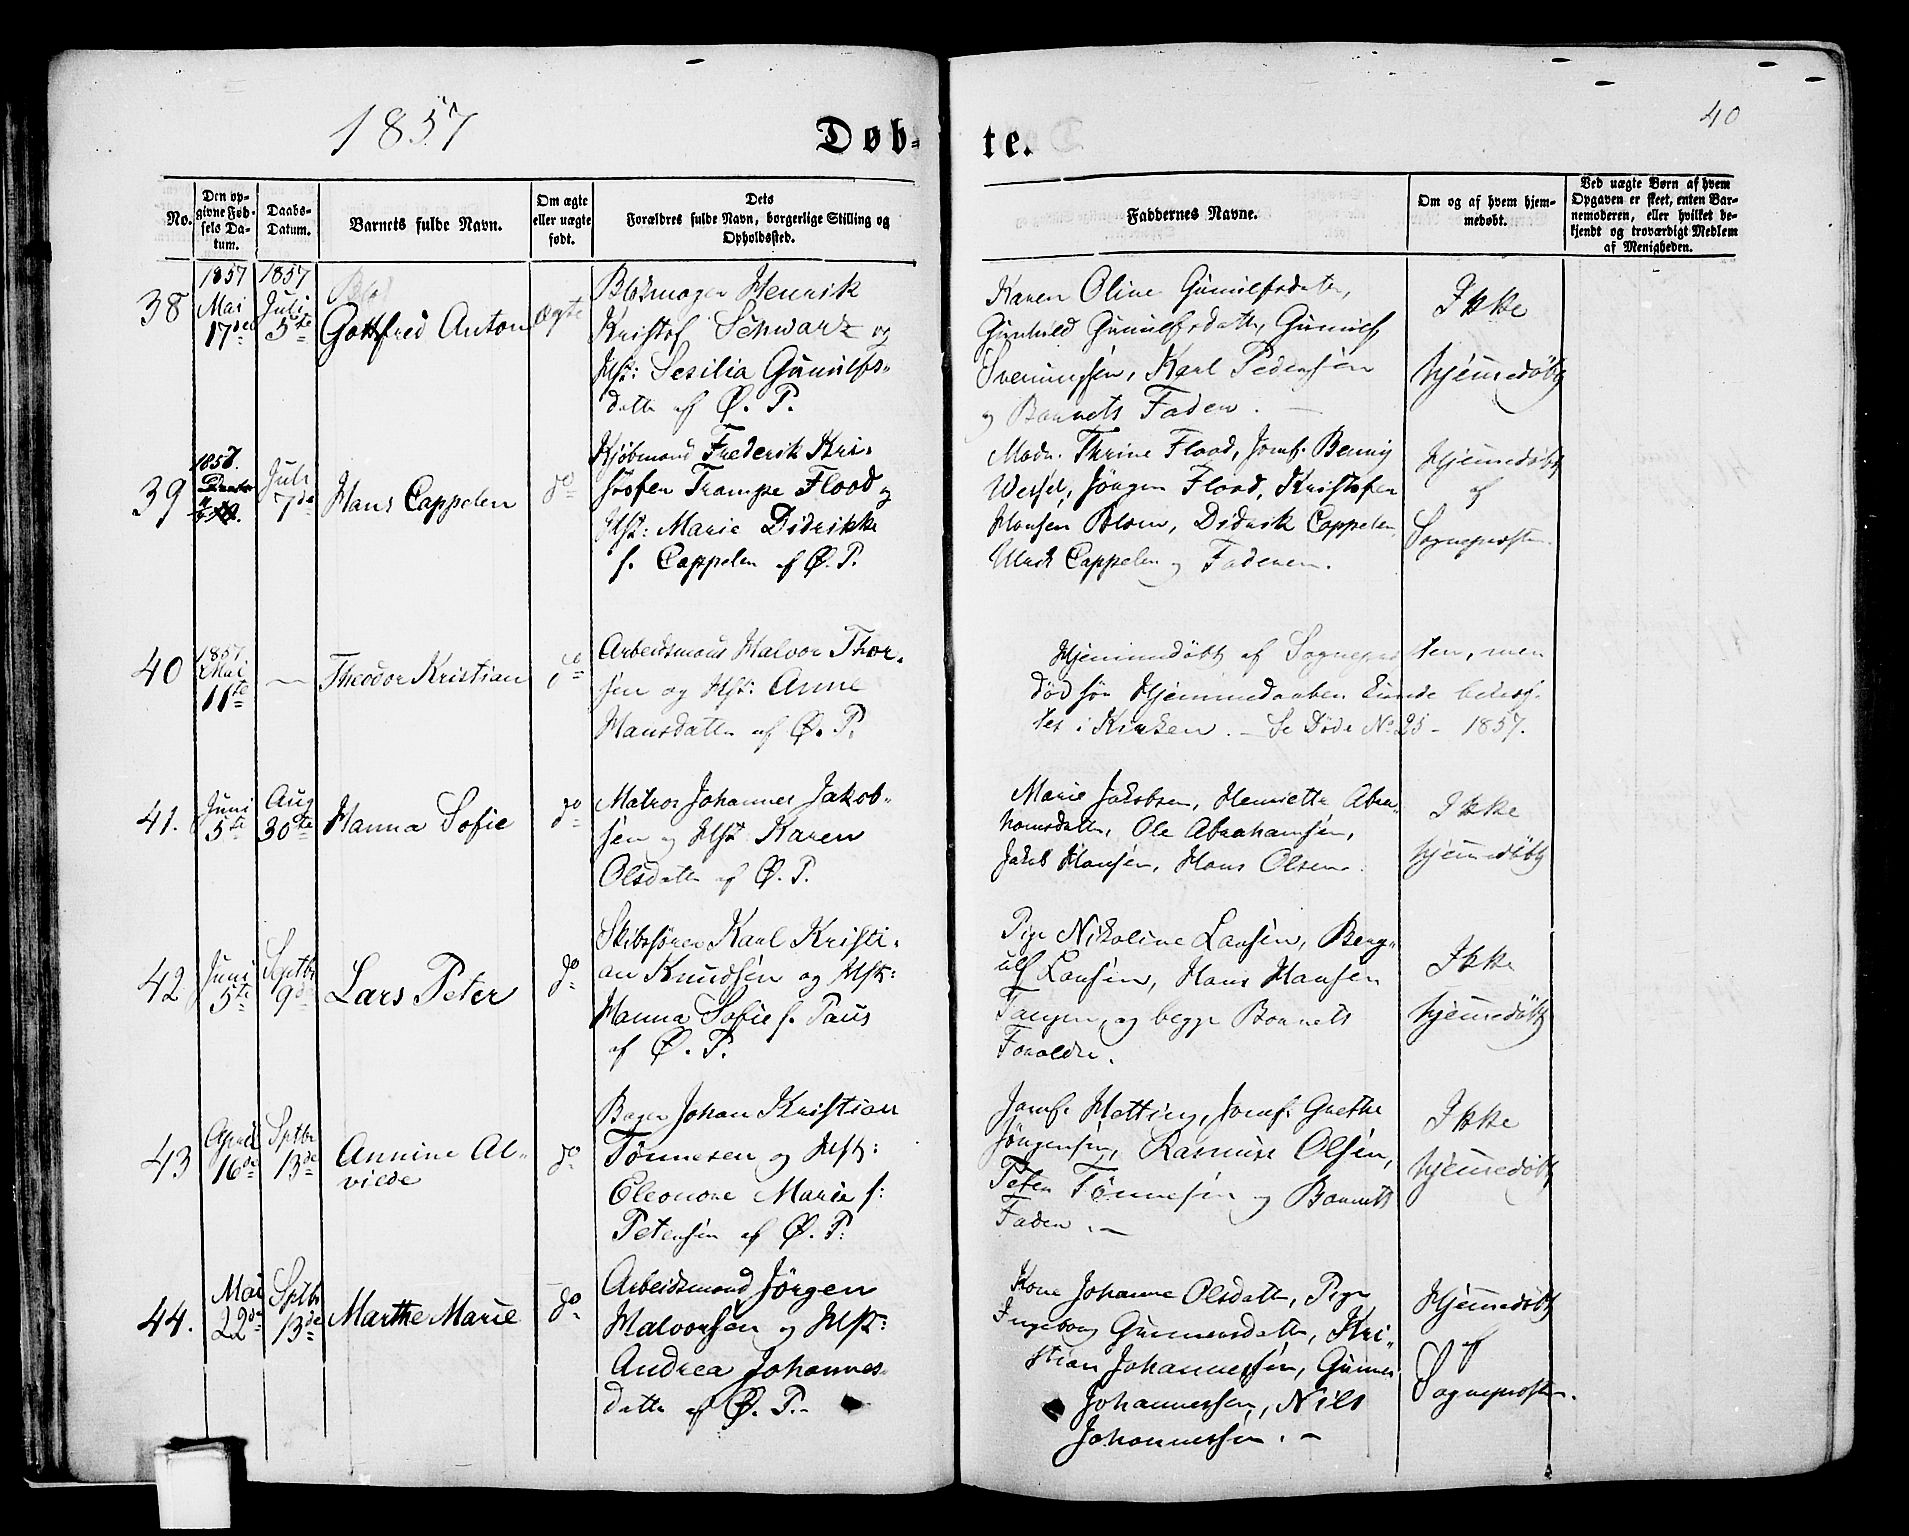 1857
Døb-
te.
40
No.
Den op-
givne Fød-
sels Da-
tum.
Daabs-
Datum.
Barnets fulde Navn.
Om ægte
eller uægte
født.
Dets
Forældres fulde Navn, borgerlige Stilling og
Opholdssted.
Faddernes Navne.
Om og af hvem hjem-
medøbt.
Ved uægte Børn af hvem
Opgaven er skeet, enten Bar-
nemoderen, eller hvilket be-
kjendt og troværdigt Medlem
af Menigheden.
38
1857
Mai
17de
1857
Juli
5te
Gottfred Anton
ægte
Henrik
Kristof Schwarz og
Hst: Sesilia Gunulfs-
datter af Ø. P.
Karen Oline Gunulfsdatter,
Gunhild Gunulfsdatter, Gunulf
Sveningsen, Karl Pedersen
og Barnets Fader. —
Ikke
hjemmedøbt
39
1857.
Juli
7de
Hans Cappelen
do
Kjøbmand Frederik Kri-
stofer Trampe Flood og
Hst: Marie Didrikke
f. Cappelen af Ø. P.
Mad. Thrine Flood, Jomf. Benny
Wessel, Jörgen Flood, Kristofer
Hansen Blom, Diderik Cappelen,
Ulrik Cappelen og Faderen.
Hjemmedøbt
af
Sognepresten.
40
1857.
Mai
11te
—
Theodor Kristian
do
Arbeidsmand Halvor Thor-
sen og Hst: Anne
Hansdatter af Ø. P.
Hjemmedøbt af Sognepresten, men
död för Hjemmedaaben kunde bekræf-
tes i Kirken. — Se Døde No 25 — 1857.
41.
Juni
5te
Aug
30te
Hanna Sofie
do
Matros Johannes Jakob-
sen og Hst Karen
Olsdatter af Ø. P.
Marie Jakobsen, Henriette Abra-
hamsdatter, Ole Abrahamsen,
Jakob Hansen, Hans Olsen.
Ikke
hjemmedøbt
42
Juni
5te
Septbr
9de
Lars Peter
do
Skibsförer Karl Kristi-
an Knudsen og Hst:
Hanna Sofie f. Paus
af Ø. P.
Pige Nikoline Larsen, Berg-
ulf Larsen, Hans Hansen
Tangen, og begge Barnets
Forældre.
Ikke
hjemmedøbt
43
April
16de
Sptbr
13de
Annine Al-
viede
do
Bager Johan Kristian
Tönnesen og Hst:
Eleonore Marie f:
Petersen af Ø. P:
Jomf. Hotting, Jomf. Grethe
Jörgensen, Rasmus Olsen,
Peter Tönnesen og Barnets
Fader. —
Ikke
hjemmedøbt
44.
Mai
22de
Sptbr
13de
Marthe Marie
do
Arbeidsmand Jörgen
Halvorsen og Hst:
Andrea Johannes-
datter af Ø. P. -
Kone Johanne Olsdatter, Pige
Ingeborg Gunnersdatter, Kri-
stian Johannessen, Gunner
Johannessen, Nils
Johannessen. —
Hjemmedøbt
af
Sognepresten.